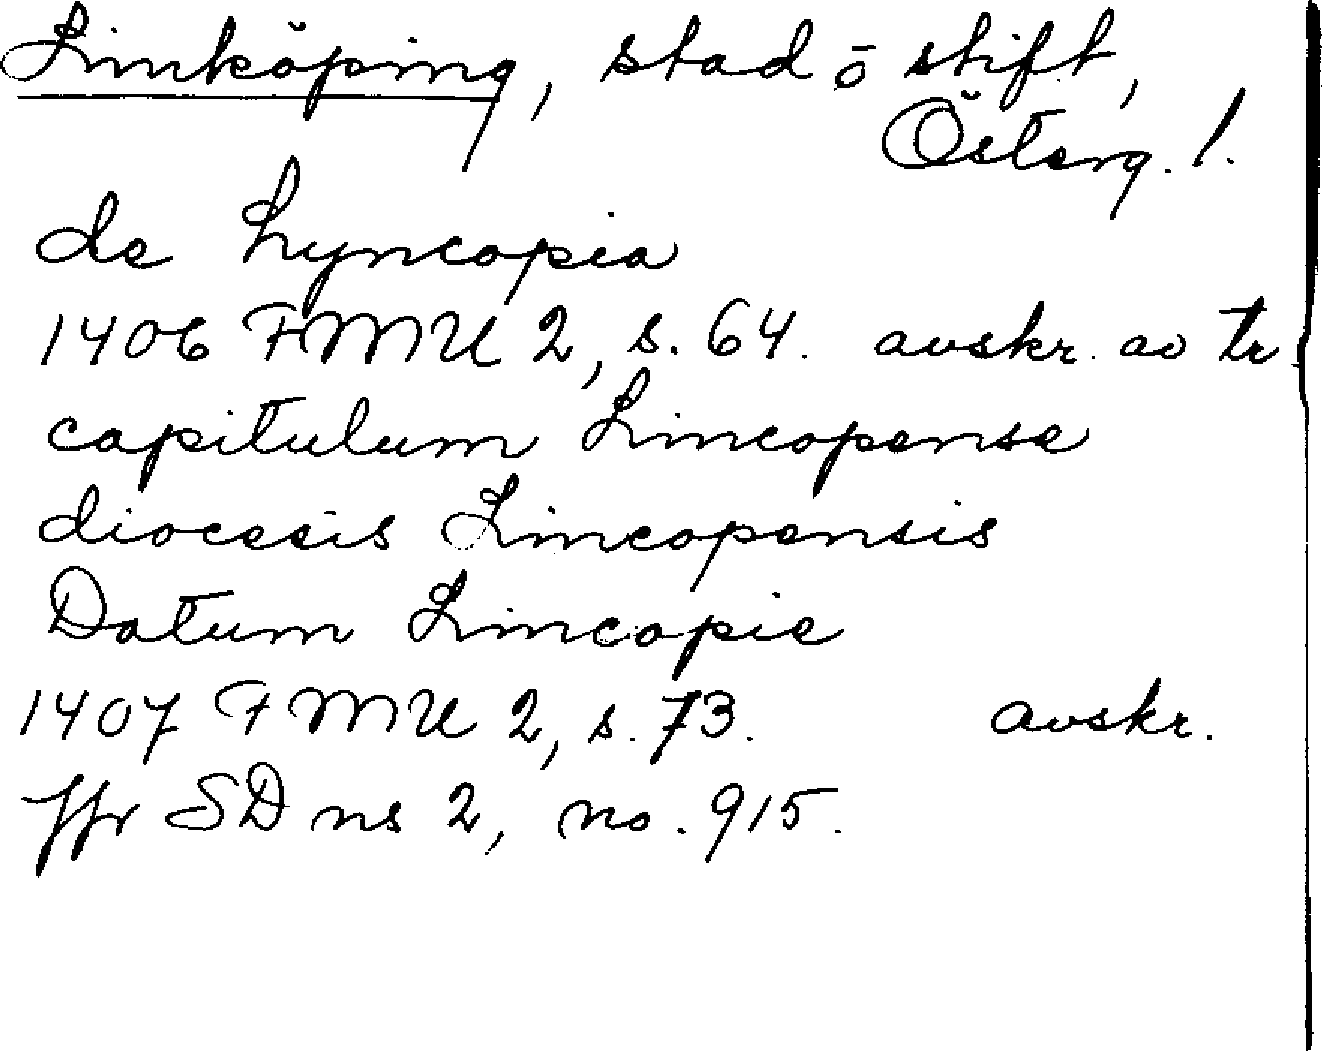 Linköping, stad ō stift,
Österg. l.
de Lyncopia
1406 FMU 2, s. 64. avskr. av tr
capitulum Lincopense
diocesis Lincopensis
Datum Lincopie
1407 FMU 2, s. 73. avskr.
Jfr SD ns 2, no. 915.